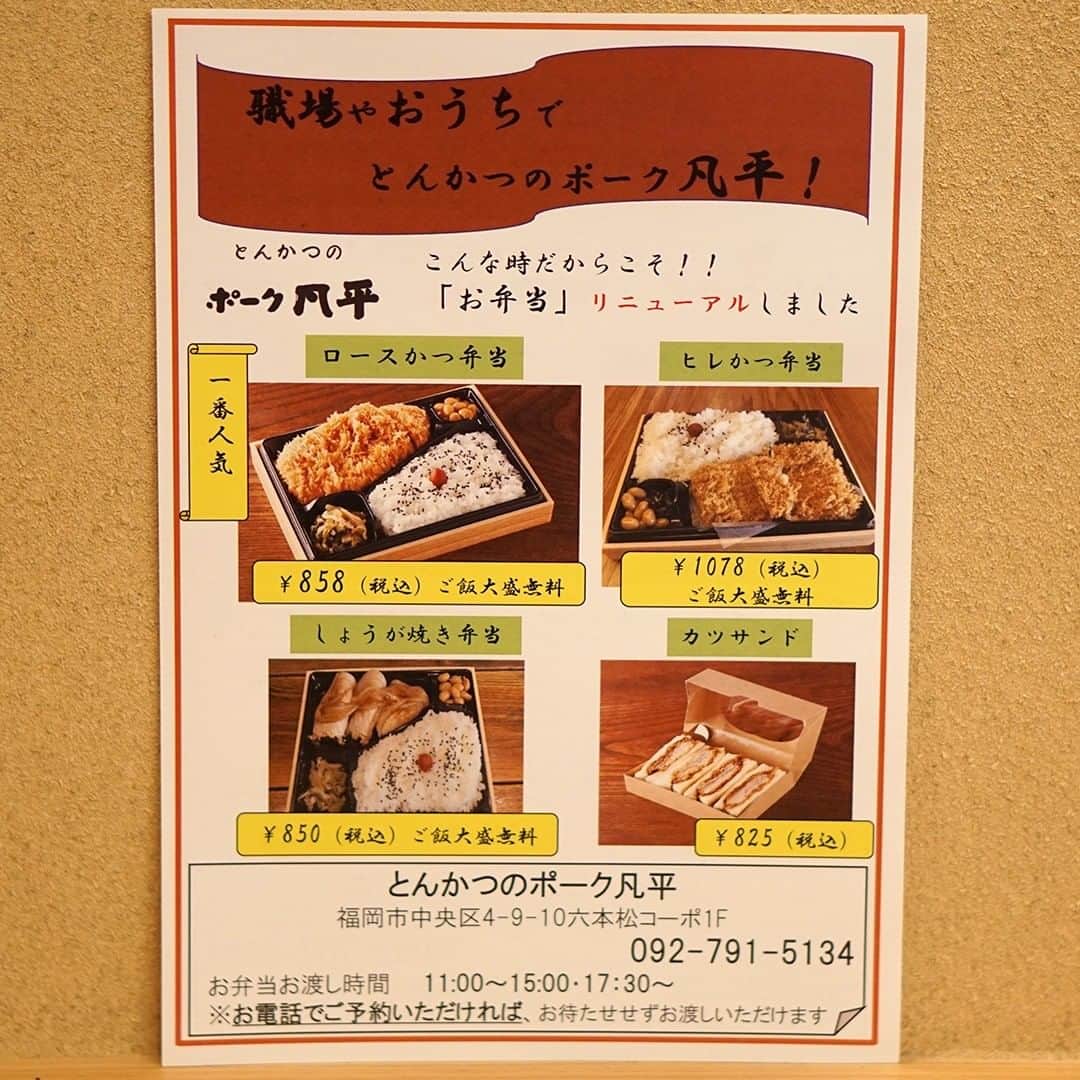 職場やおうちで
とんかつのポーク凡平！
とんかつの
ポーク凡平
こんな時だからこそ！！
「お弁当」リニューアルしました
一番人気
ロースかつ弁当
¥858（税込）ご飯大盛無料
ヒレかつ弁当
¥1078（税込）
ご飯大盛無料
しょうが焼き弁当
¥850（税込）ご飯大盛無料
カツサンド
¥825（税込）
とんかつのポーク凡平
福岡市中央区4-9-10六本松コーポ1F
092-791-5134
お弁当お渡し時間 11:00～15:00･17:30～
※お電話でご予約いただければ、お待たせせずお渡しいただけます